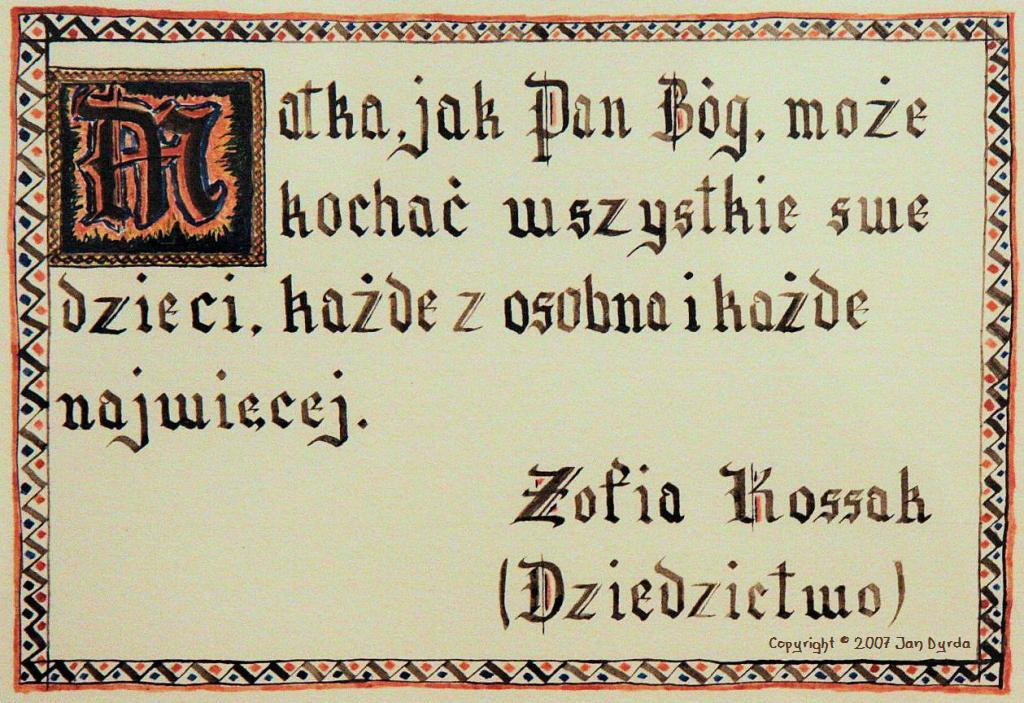 Matka, jak Pan Bóg, może
kochać wszystkie swe
dzieci, każde z osobna i każde
najwięcej.
Zofia Kossak
(Dziedzictwo)
Copyright © 2007 Jan Dyrda